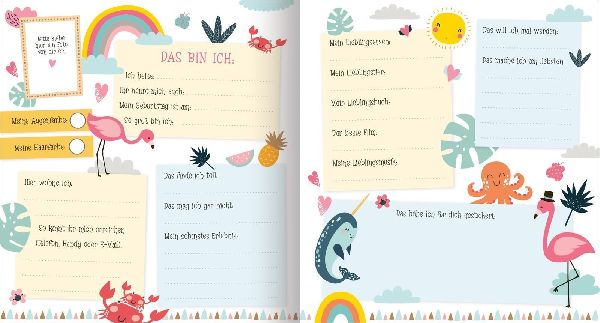 Bitte klebe
hier ein Foto
von dir ein.
DAS BIN ICH:
Ich heiße:
Ihr nennt mich auch:
Mein Geburtstag ist am:
So groß bin ich:
Meine Augenfarbe:
Meine Haarfarbe:
Hier wohne ich:
So könnt ihr mich erreichen
(Telefon, Handy oder E-Mail):
Das finde ich toll:
Das mag ich gar nicht:
Mein schönstes Erlebnis:
Mein Lieblingsessen:
Mein Lieblingstier:
Mein Lieblingsbuch:
Der beste Film:
Meine Lieblingsmusik:
Das will ich mal werden:
Das mache ich am liebsten:
Das habe ich für dich gezeichnet: